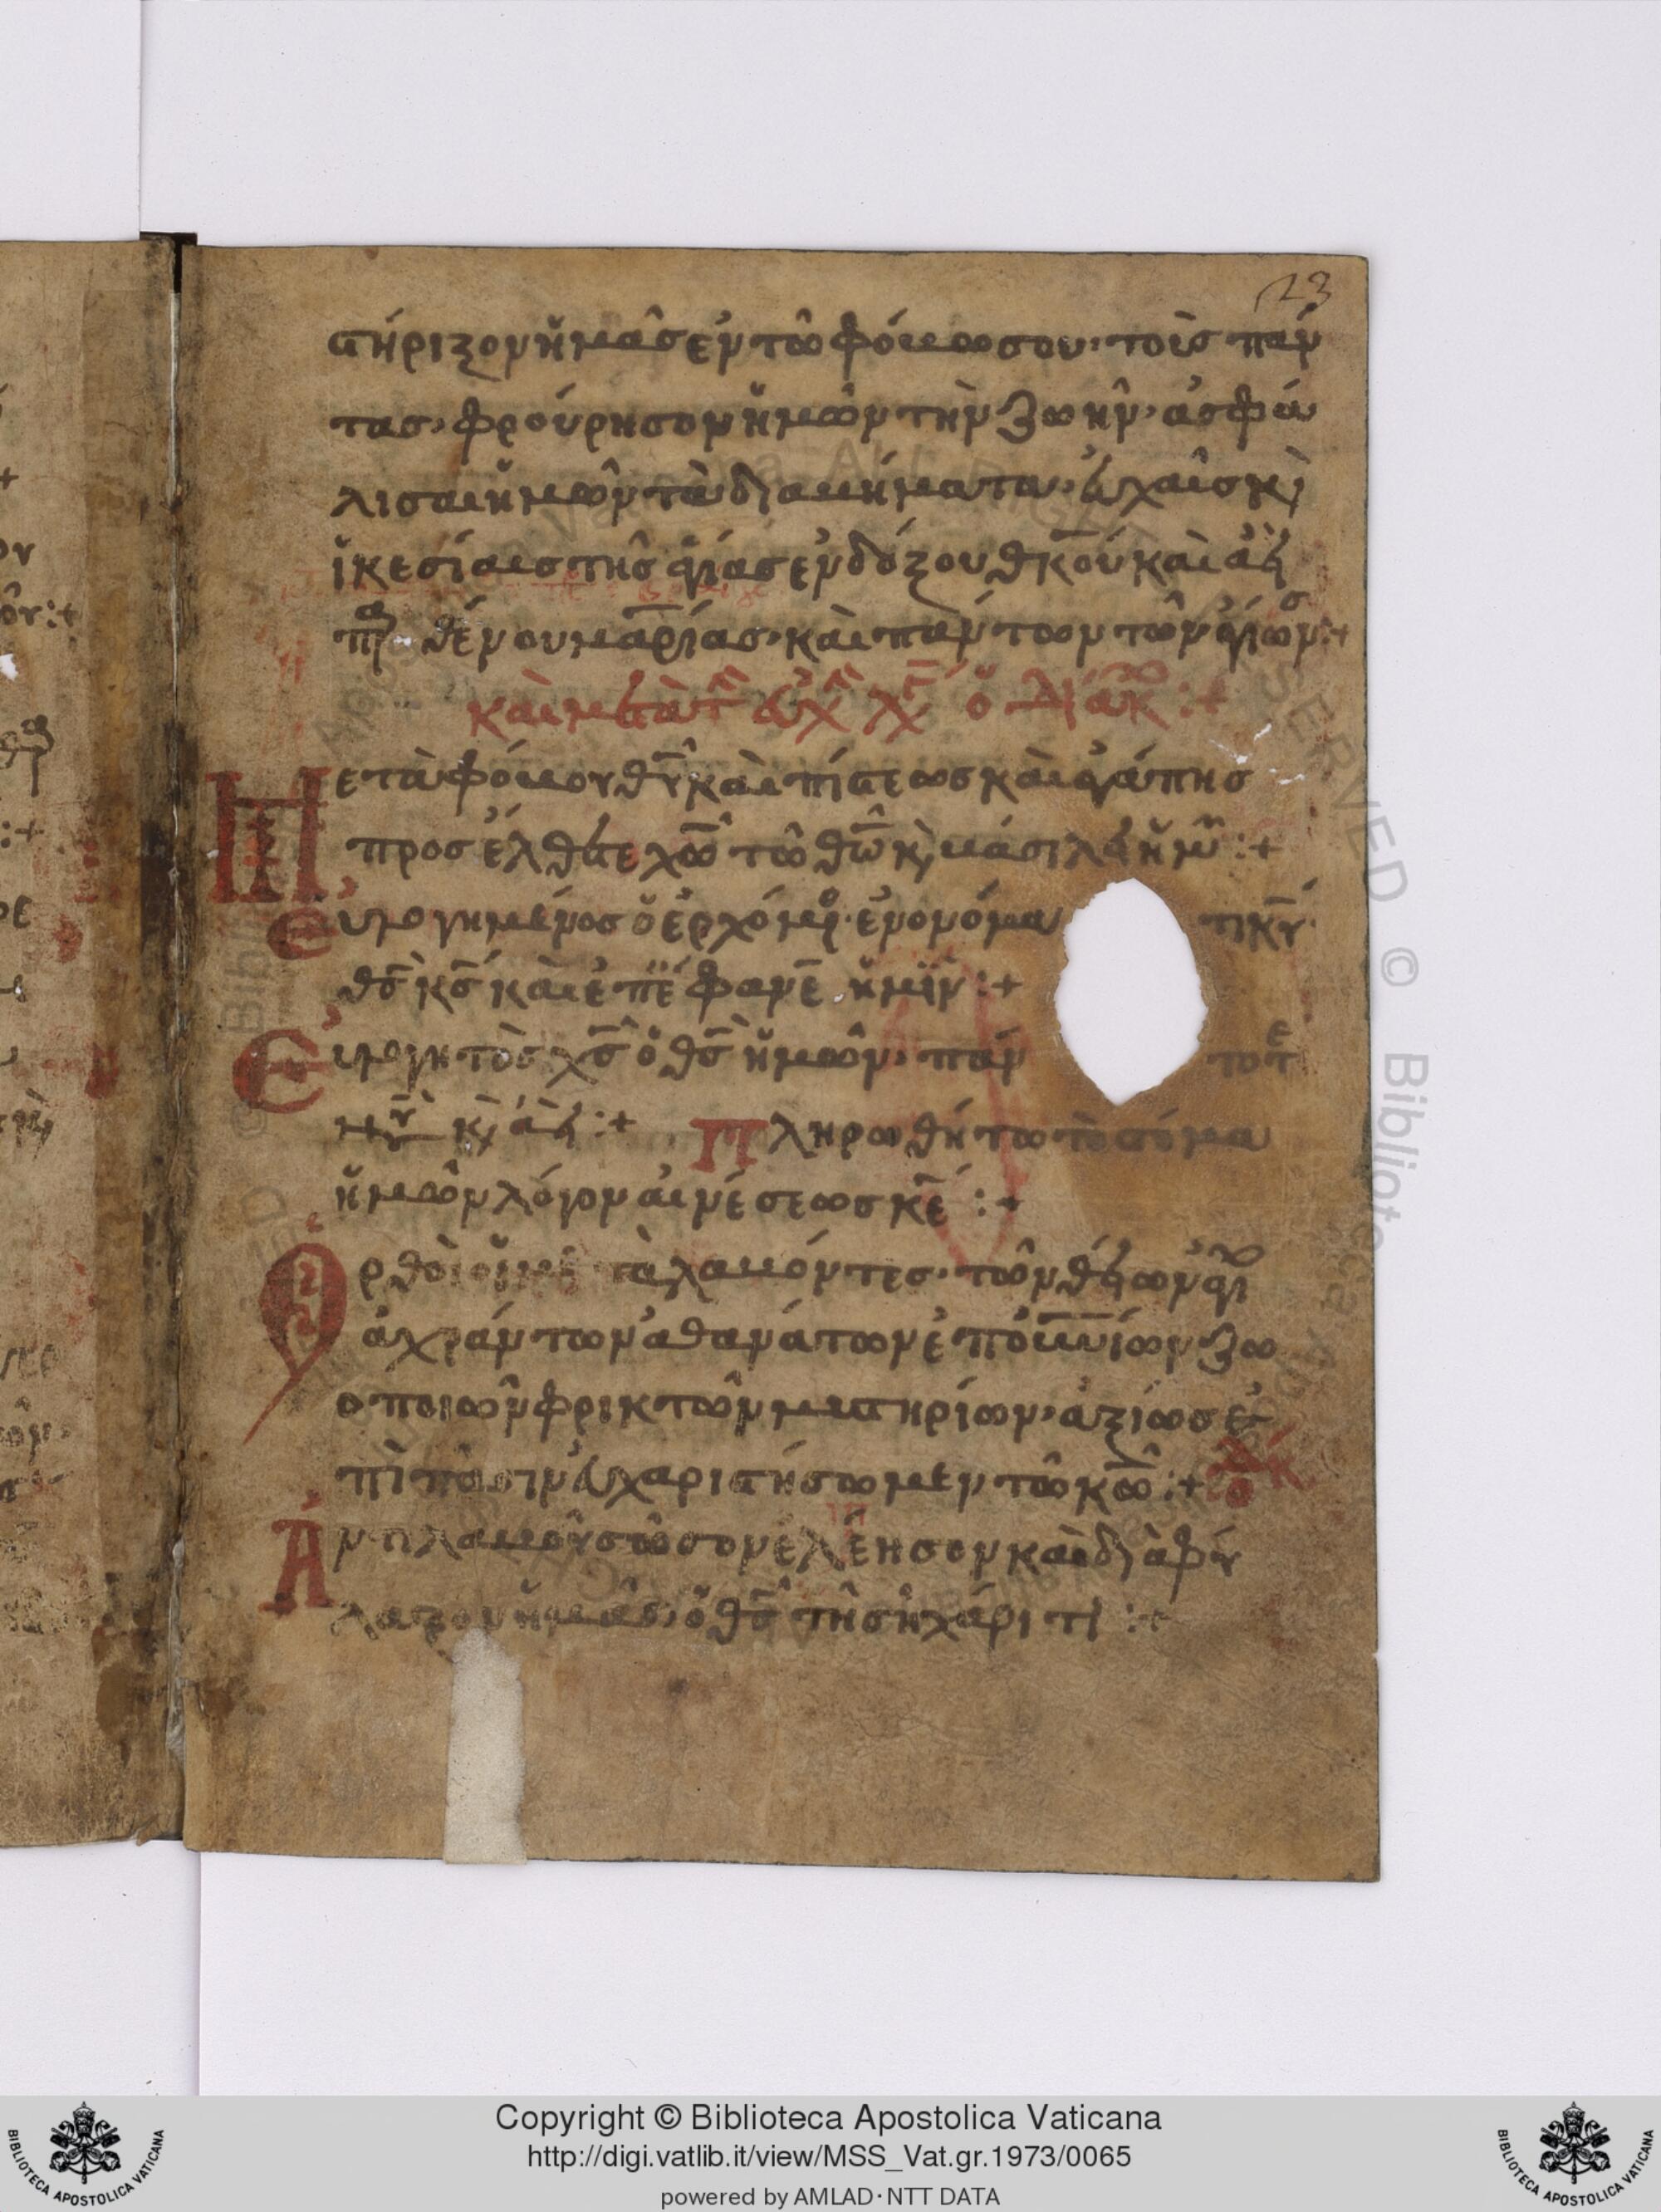 23
στήριξον ἡμᾶς ἐν τῶ φόβω σου· τοὺς πάν
τας· φρούρησον ἡμῶν τὴν ζωὴν· ἀσφά
λισαι ἡμῶν τὰ διαβήματα· εὐχαῖς κ(αὶ)
ἱκεσίαις τῆς ἁγίας ἐνδόξου θκου καὶ ἀει
πρ θένου μαρίας· καὶ πάντων τῶν ἁγίων σ :+
καὶ μετὰ τ εὐχ χ ὁ διάκο :+
Μετὰ φόβου θυ καὶ πίστεως καὶ ἀγάπης
προσέλθετε χω τῶ θω κ(αὶ) βασιλεῖ ἡμῶ :+
Εὐλογημένος ὁ ἐρχόμε· ἐν ὀνόμα τι κυ·
θς κς καὶ ἐπε φανε ἡμῖν :+
Εὐλογητὸς χς ὁ θς ἡμῶν· πάν τοτε
νυν κ(αὶ) ἀεὶ :+ Πληρωθήτω τὸ στόμα
ἡμῶν λόγον αἰνέσεως κε :+
Ὀρθοὶ οἱ με τὰ λαβόντες· τῶν θείων ἁγι
ἀχράντων ἀθανάτων ἐπουνίων ζω
οποιῶν φρικτῶν μυστηρίων· ἀξίως ἐ
πὶ πᾶσιν εὐχαριστήσωμεν τῶ κω :+ ὁ δκ
Ἀντιλαβοῦ σῶσον ἐλέησον καὶ διαφύ
λαξον ἡμᾶς· ὁ θς τῆ σῆ χάριτι :+
Copyright © Biblioteca Apostolica Vaticana
http://digi.vatlib.it/view/MSS_Vat.gr.1973/0065
powered by AMLAD·NTT DATA
BIBLIOTECA APOSTOLICA VATICANA
BIBLIOTECA APOSTOLICA VATICANA